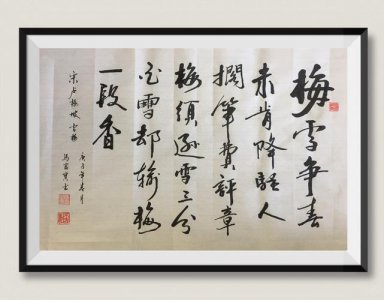 梅雪争春
未肯降騷人
擱筆費評章
梅須遜雪三分
白雪却輸梅
一段香
宋卢梅坡雪梅
年春月